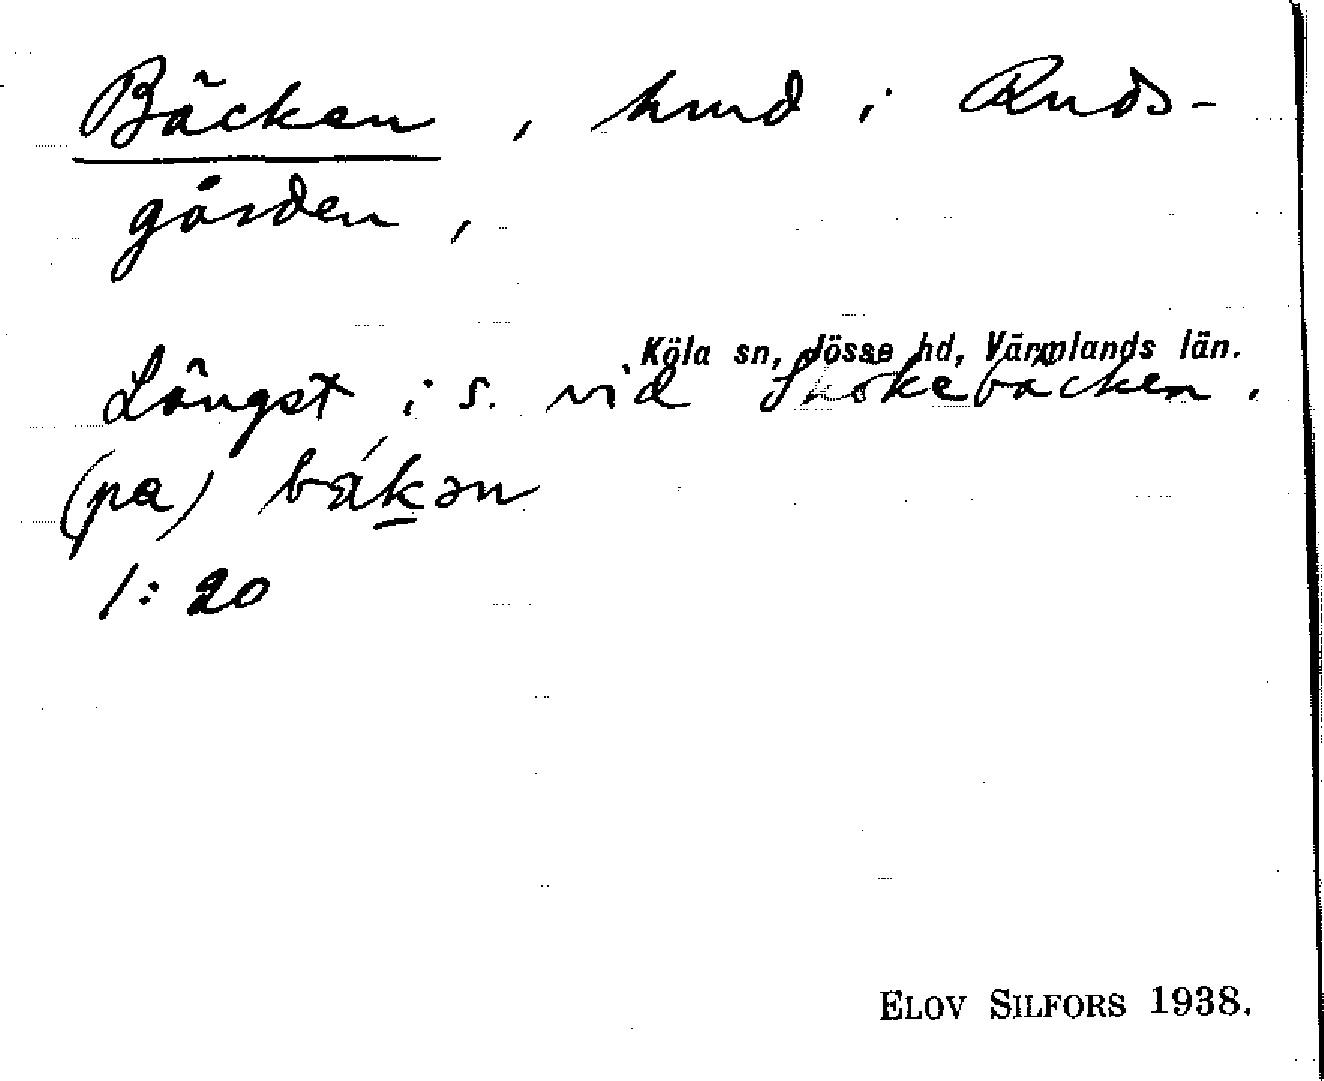 Bäcken, hmd i Ruds-
gården,
Köla sn, Jösse hd, Värmlands län.
Längst i s. vid Skokebäcken.
(pa) bäkən
1:20
ELOV SILFORS 1938.